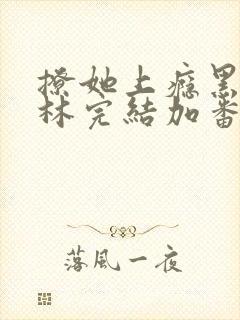 撩她上瘾黑
林完結加番
落風一夜